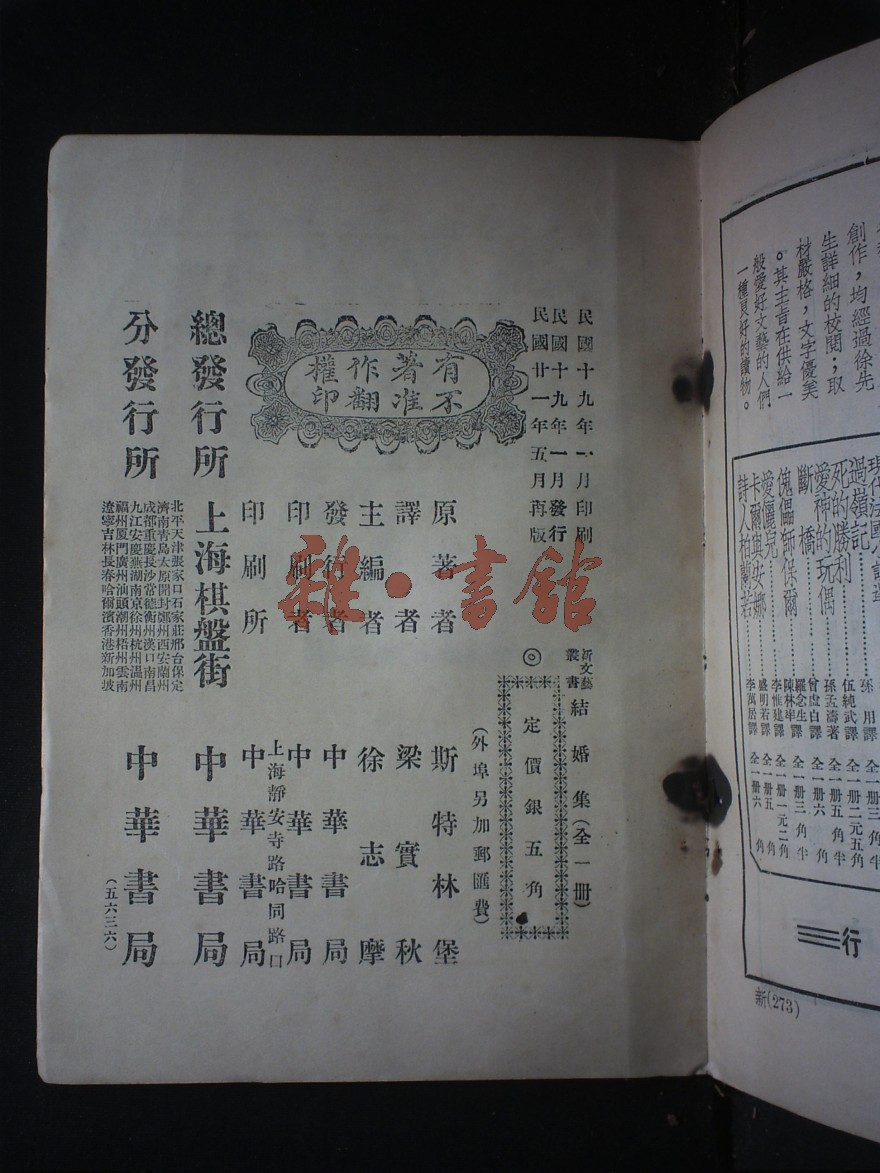 民國十九年一月印刷
民國十九年一月發行
民國廿一年五月再版
有著作權
不准翻印
新文藝叢書 結婚集(全一冊)
◎定價銀五角
(外埠另加郵匯費)
原著者 斯特林堡
譯者 梁實秋
主編者 徐志摩
發行者 中華書局
印刷者 中華書局
上海靜安寺路哈同路口
印刷所 中華書局
總發行所 上海棋盤街 中華書局
分發行所
北平天津張家口石家莊邢台保定
濟南青島太原開封鄭州西安蘭州
成都重慶長沙常德衡州漢口南昌
九江安慶蕪湖南京徐州杭州溫州
福州厦門廣州汕頭潮州梧州雲南
遼寧吉林長春哈爾濱香港新加坡
中華書局
(五六三六)
雜·書館
創作,均經過徐先
生詳細的校閱;取
材嚴格,文字優美
。其主旨在供給一
般愛好文藝的人們
一種良好的讀物。
過嶺記 孫用譯 全一冊三角半
死的勝利 伍純武譯 全一冊二元五角
愛神的玩偶 孫孟濤著 全一冊五角半
斷橋 曾虛白譯 全一冊六角
傀儡師保爾 羅念生 陳林率譯 全一冊三角半
愛儷兒 李惟建譯 全一冊一元二角
卡爾與安娜 盛明若譯 全一冊五角
詩人柏蘭若 李萬居譯 全一冊六角
行
新(273)